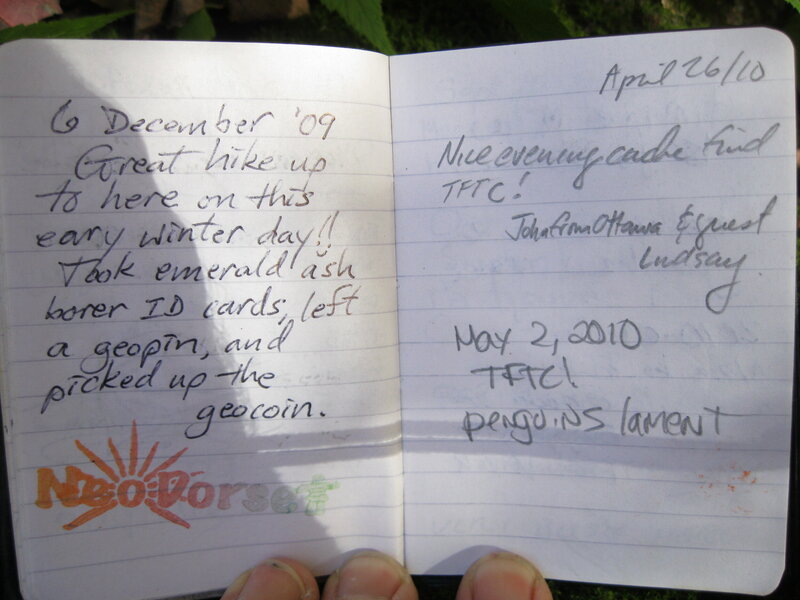 6 December '09
Great hike up
to here on this
eary winter day!!
Took emerald ash
borer ID cards, left
a geopin, and
picked up the
geocoin.
NeoDorset
April 26/10
Nice evening cache find
TFTC!
John from Ottawa & guest
Lindsay
May 2, 2010
TFTC!
penguins lament